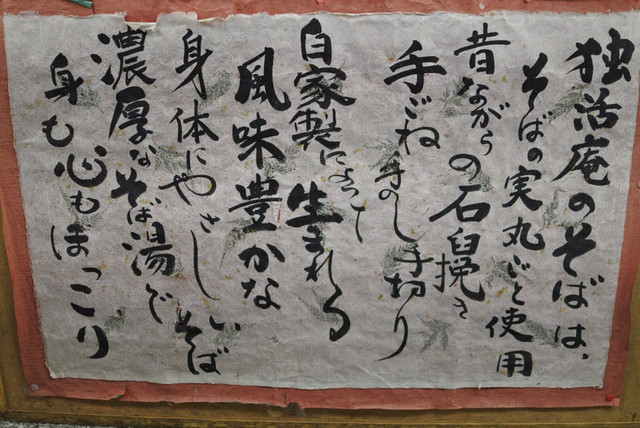 独活庵のそばは、
そばの実丸ごと使用
昔ながらの石臼挽き
手ごね手のし手切り
自家製によって
生まれる
風味豊かな
身体にやさしいそば
濃厚なそば湯で
身も心もほっこり